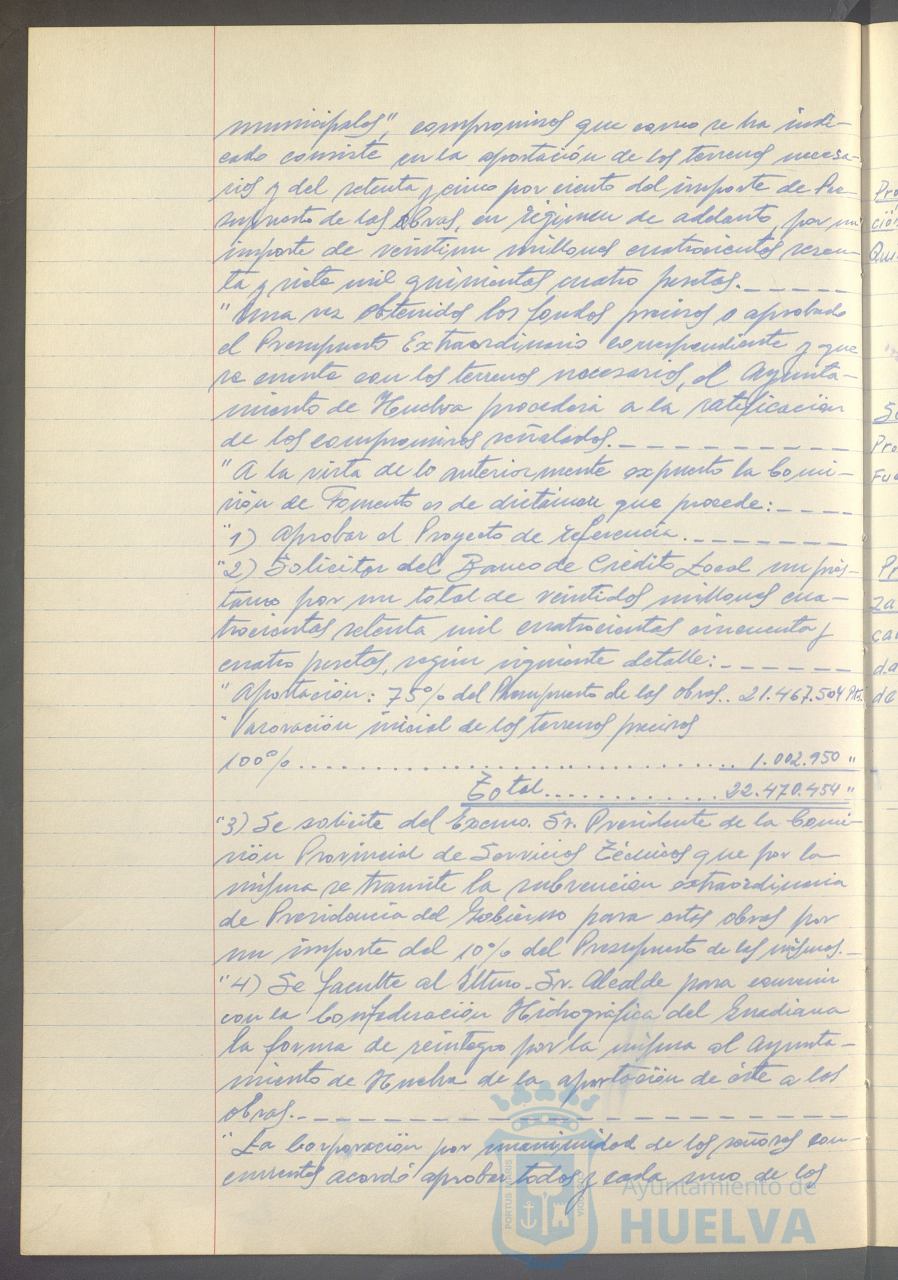 municipales", compromisos que como se ha indi-
cado consiste en la aportación de los terrenos necesa-
rios y del setenta y cinco por ciento del importe de Pre-
supuesto de las obras, en régimen de adelanto, por un
importe de veintiun millones cuatrocientas sesen-
ta y siete mil quinientas cuatro pesetas.
"Una vez obtenidos los fondos precisos o aprobado
el Presupuesto Extraordinario correspondiente y que
se cuenta con los terrenos necesarios, el Ayunta-
miento de Huelva procederá a la ratificación
de los compromisos señalados.
"A la vista de lo anteriormente expuesto la Comi-
sión de Fomento es de dictamen que procede:
"1) Aprobar el Proyecto de referencia.
"2) Solicitar del Banco de Crédito Local un prés-
tamo por un total de veintidos millones cua-
trocientas setenta mil cuatrocientas cincuenta y
cuatro pesetas, según siguiente detalle:
"Aportación: 75% del Presupuesto de las obras.. 21.467.504 Pts.
"Valoración inicial de los terrenos precisos
100% .... 1.002.950 "
Total.... 22.470.454 "
"3) Se solicite del Excmo. Sr. Presidente de la Comi-
sión Provincial de Servicios Técnicos que por la
misma se tramite la subvención extraordinaria
de Presidencia del Gobierno para estas obras por
un importe del 10% del Presupuesto de las mismas.
"4) Se faculte al Iltmo. Sr. Alcalde para convenir
con la Confederación Hidrográfica del Guadiana
la forma de reintegro por la misma al Ayunta-
miento de Huelva de la aportación de éste a las
obras.
"La Corporación por unanimidad de los señores con-
currentes acordó aprobar todos y cada uno de los
Ayuntamiento de
HUELVA